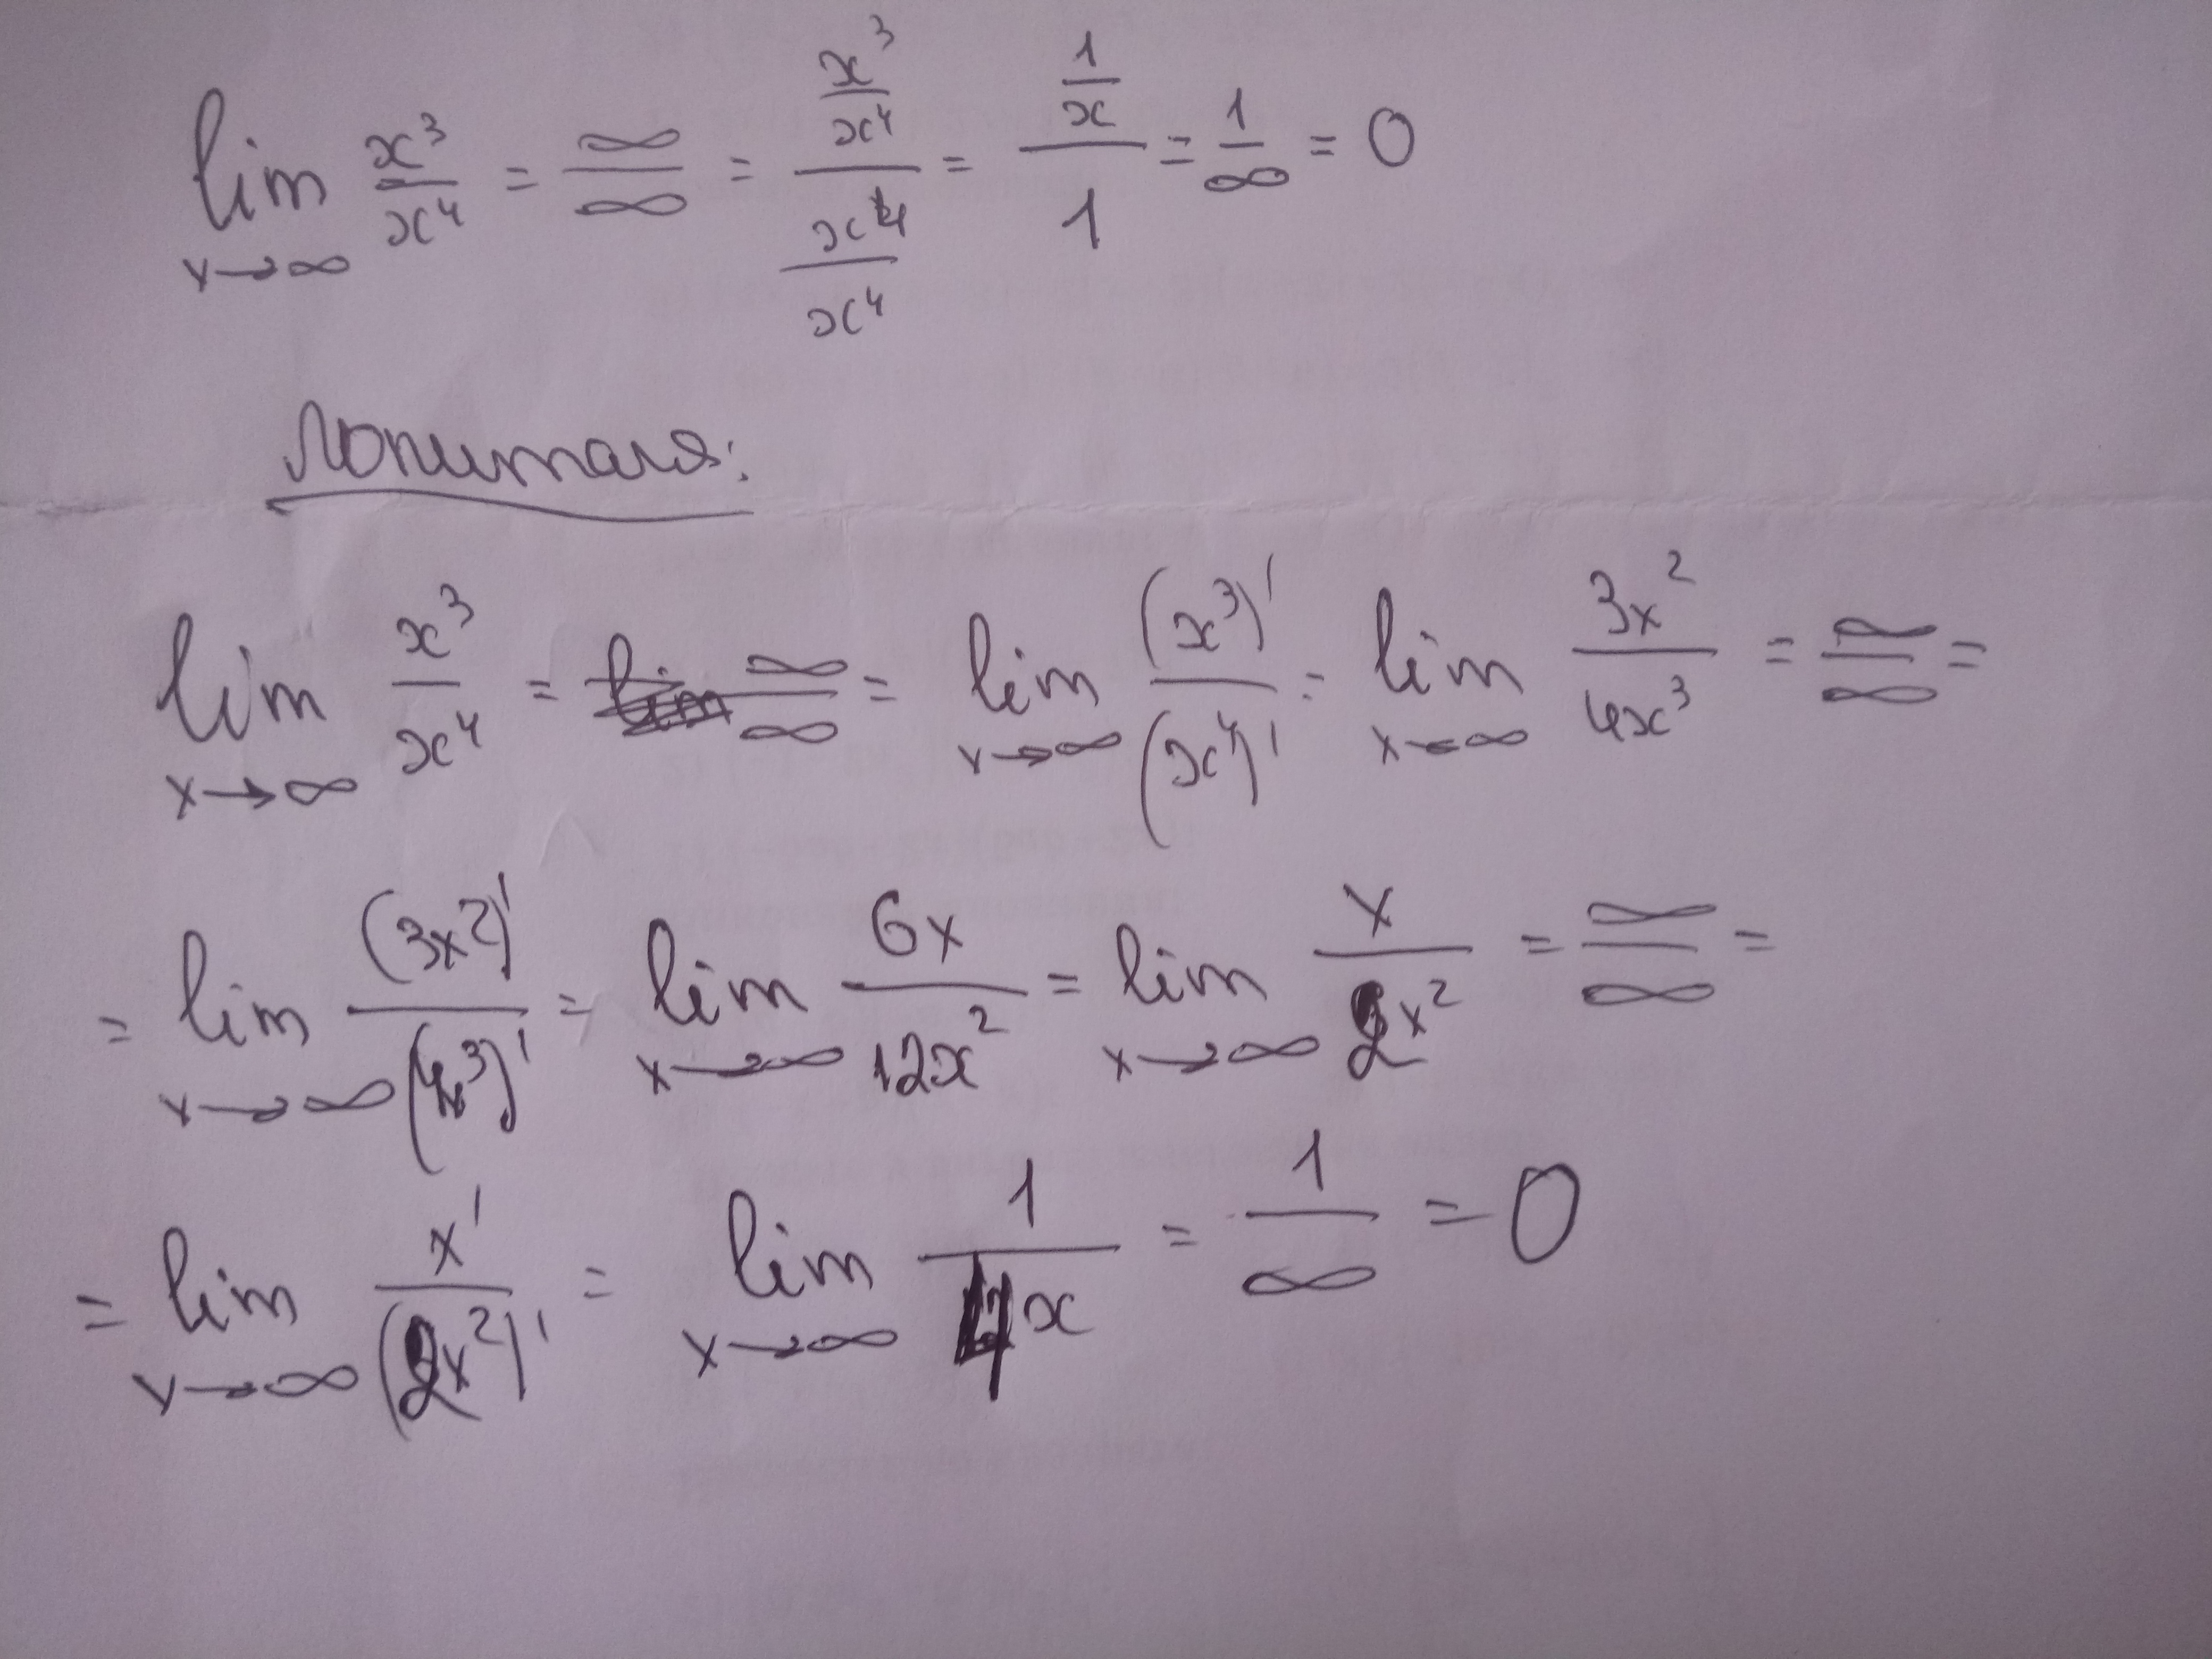 lim x→∞ x³/x⁴ = ∞/∞ = (x³/x⁴)/(x⁴/x⁴) = (1/x)/1 = 1/∞ = 0
Лопиталя:
lim x→∞ x³/x⁴ = ∞/∞ = lim x→∞ (x³)'/(x⁴)' = lim x→∞ 3x²/4x³ = ∞/∞ =
= lim x→∞ (3x²)'/(4x³)' = lim x→∞ 6x/12x² = lim x→∞ x/2x² = ∞/∞ =
= lim x→∞ x'/(2x²)' = lim x→∞ 1/4x = 1/∞ = 0